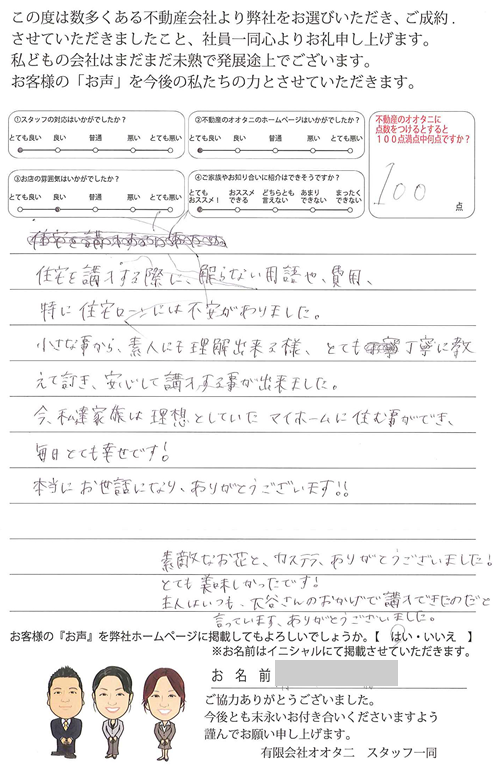 この度は数多くある不動産会社より弊社をお選びいただき、ご成約.
させていただきましたこと、社員一同心よりお礼申し上げます。
私どもの会社はまだまだ未熟で発展途上でございます。
お客様の「お声」を今後の私たちの力とさせていただきます。
①スタッフの対応はいかがでしたか?
とても良い 良い 普通 悪い とても悪い
②不動産のオオタニのホームページはいかがでしたか?
とても良い 良い 普通 悪い とても悪い
③お店の雰囲気はいかがでしたか?
とても良い 良い 普通 悪い とても悪い
④ご家族やお知り合いに紹介はできそうですか?
とても オススメ! オススメ できる どちらとも 言えない あまり できない まったく できない
不動産のオオタニに
点数をつけるとすると
100点満点中何点ですか?
100
点
住宅を講オする際に、解らない用語や、費用、
特に住宅ローンには不安がありました。
小さな事から、素人にも理解出来る様、とても丁寧に教
えて訂き、安心して講オする事が出来ました。
今、私達家族は理想としていたマイホームに住む事ができ、
毎日とても幸せです!
本当にお世話になり、ありがとうございます!!
素敵なお花と、カステラ、ありがとうございました!
とても美味しかったです!
主人はいつも、大谷さんのおかげで講オできたのだと
言っています、ありがとうございました。
お客様の『お声』を弊社ホームページに掲載してもよろしいでしょうか。【 はい・いいえ 】
※お名前はイニシャルにて掲載させていただきます。
お 名 前
ご協力ありがとうございました。
今後とも末永いお付き合いくださいますよう
謹んでお願い申し上げます。
有限会社オオタニ スタッフ一同